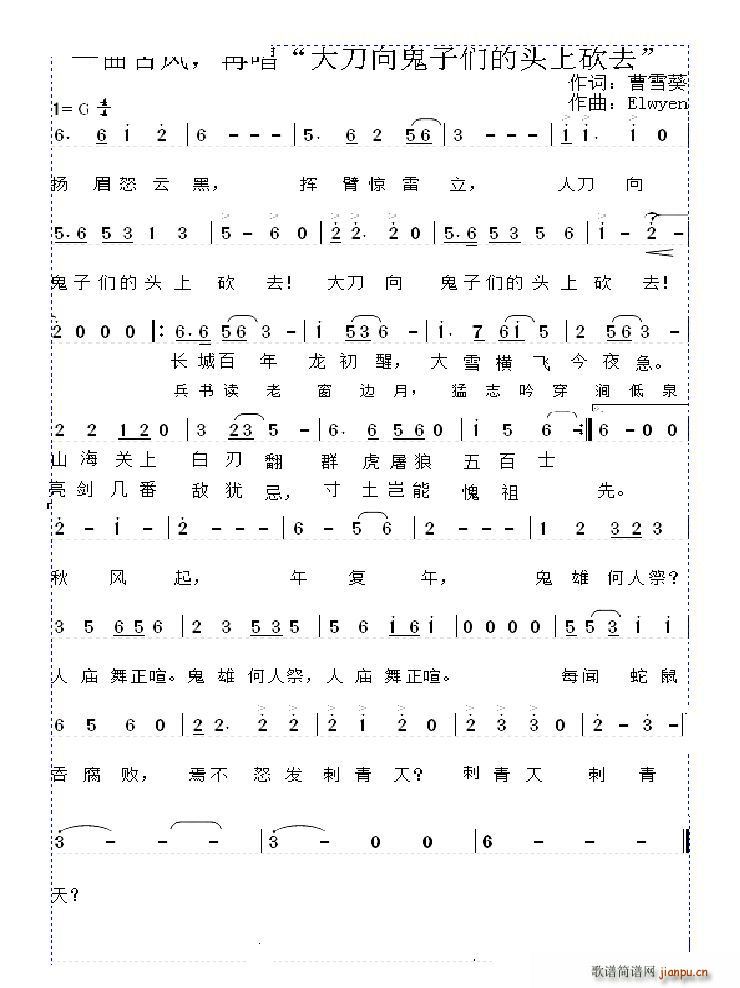 一曲古风，再唱“大刀向鬼子们的头上砍去”
作词：曹雪葵
作曲：Elwyen
1= G 4/4
6. 6 1 2 | 6 - - - | 5. 6 2 56 | 3 - - - | 1 1. 1 0
扬 眉怒云黑， 挥臂惊雷立， 大刀 向
5.6 53 1 3 | 5 - 6 0 | 2 2. 2 0 | 5.6 53 5 6 | 1 - 2 -
鬼子们的头上 砍 去! 大刀 向 鬼子们的头上砍 去!
2 0 0 0 |: 6.6 56 3 - | 1 536 3 - | 1. 7 61 5 | 2 563 -
长城百 年 龙初醒， 大雪横飞今夜急。
兵书读 老 窗 边月，猛志吟穿 涧低泉
2 2 12 0 | 3 23 5 - | 6. 6 56 0 | 1 5 6 - :| 6 - 0 0
山海关上 白刃翻 群虎屠狼 五百士
亮剑几番 敌犹忌， 寸土岂能 愧祖 先。
2 - 1 - | 2 - - - | 6 - 5 6 | 2 - - - | 1 2 32 3
秋 风 起， 年 复 年， 鬼雄何人祭?
3 5 65 6 | 2 3 53 5 | 5 6 16 1 | 0 0 0 0 | 55 3 1 1
人庙舞正喧。鬼雄何人祭，人庙舞正喧。 每闻 蛇鼠
6 5 6 0 | 2 2. 2 2 | 2 1 2 0 | 2 3 3 0 | 2 - 3 -
吞腐败， 焉不 怒发刺青天? 刺青天 刺 青
3 - - - | 3 - 0 0 | 6 - - - ‖
天?
歌谱简谱网 jianpu.cn